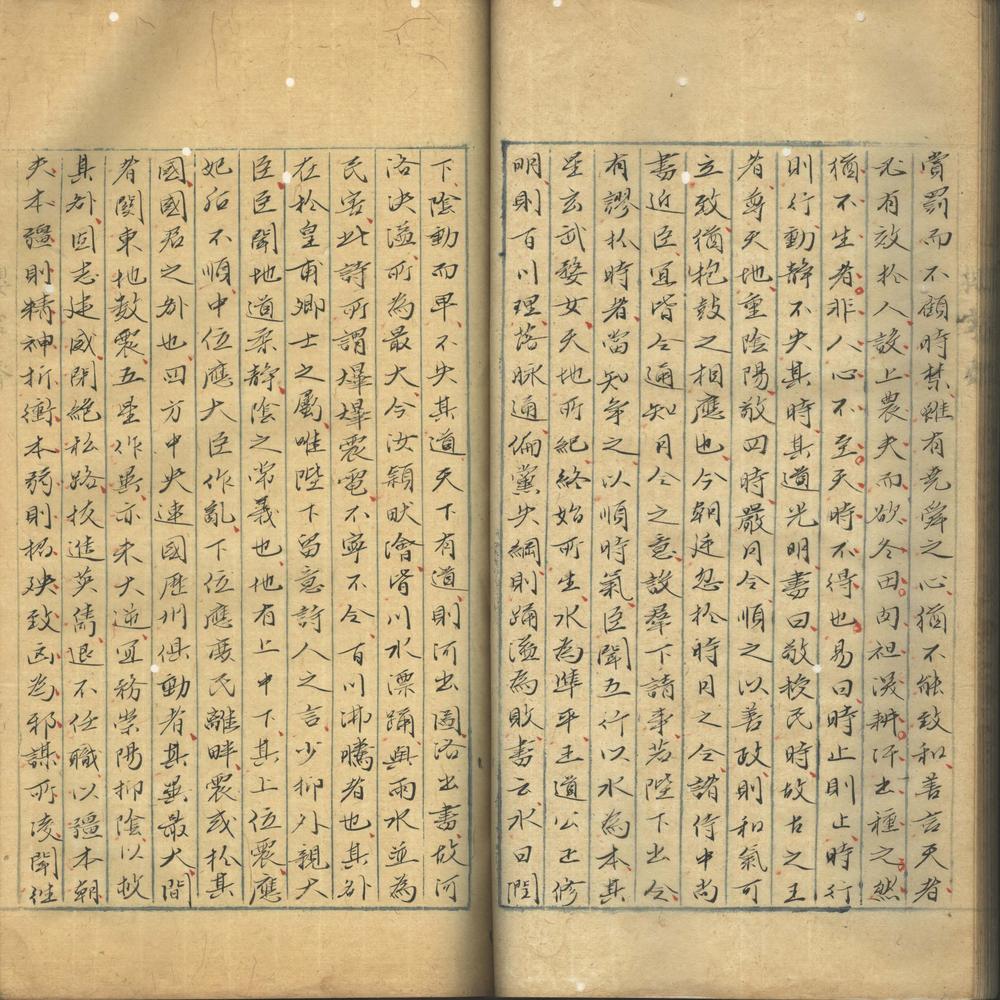 賞罰而不顧時禁雖有堯舜之心猶不能致和善言天者
必有效於人設上農夫而欲冬田肉袒深耕汗出種之然
猶不生者非人心不至天時不得也易曰時止則止時行
則行動靜不失其時其道光明書曰敬授民時故古之王
者尊天地重陰陽敬四時嚴月令順之以善政則和氣可
立致猶枹鼓之相應也今朝廷忽於時月之令諸侍中尚
書近臣宜皆令通知月令之意設羣下請事若陛下出令
有謬於時者當知爭之以順時氣臣聞五行以水為本其
星玄武婺女天地所紀終始所生水為準平王道公正修
明則百川理落脉通偏黨失綱則踊溢為敗書云水曰潤
下陰動而卑不失其道天下有道則河出圖洛出書故河
洛決溢所為最大今汝潁畎澮皆川水漂踊與雨水並為
民害此詩所謂爗爗震電不寧不令百川沸騰者也其咎
在於皇甫卿士之屬唯陛下留意詩人之言少抑外親大
臣臣聞地道柔靜陰之常義也地有上中下其上位震應
妃后不順中位應大臣作亂下位應庶民離畔震或於其
國國君之咎也四方中央連國歷州俱動者其異最大間
者關東地數震五星作異亦未大逆宜務崇陽抑陰以救
其咎固志建威閉絕私路拔進英雋退不任職以彊本朝
夫本彊則精神折衝本弱則招殃致凶為邪謀所凌聞往